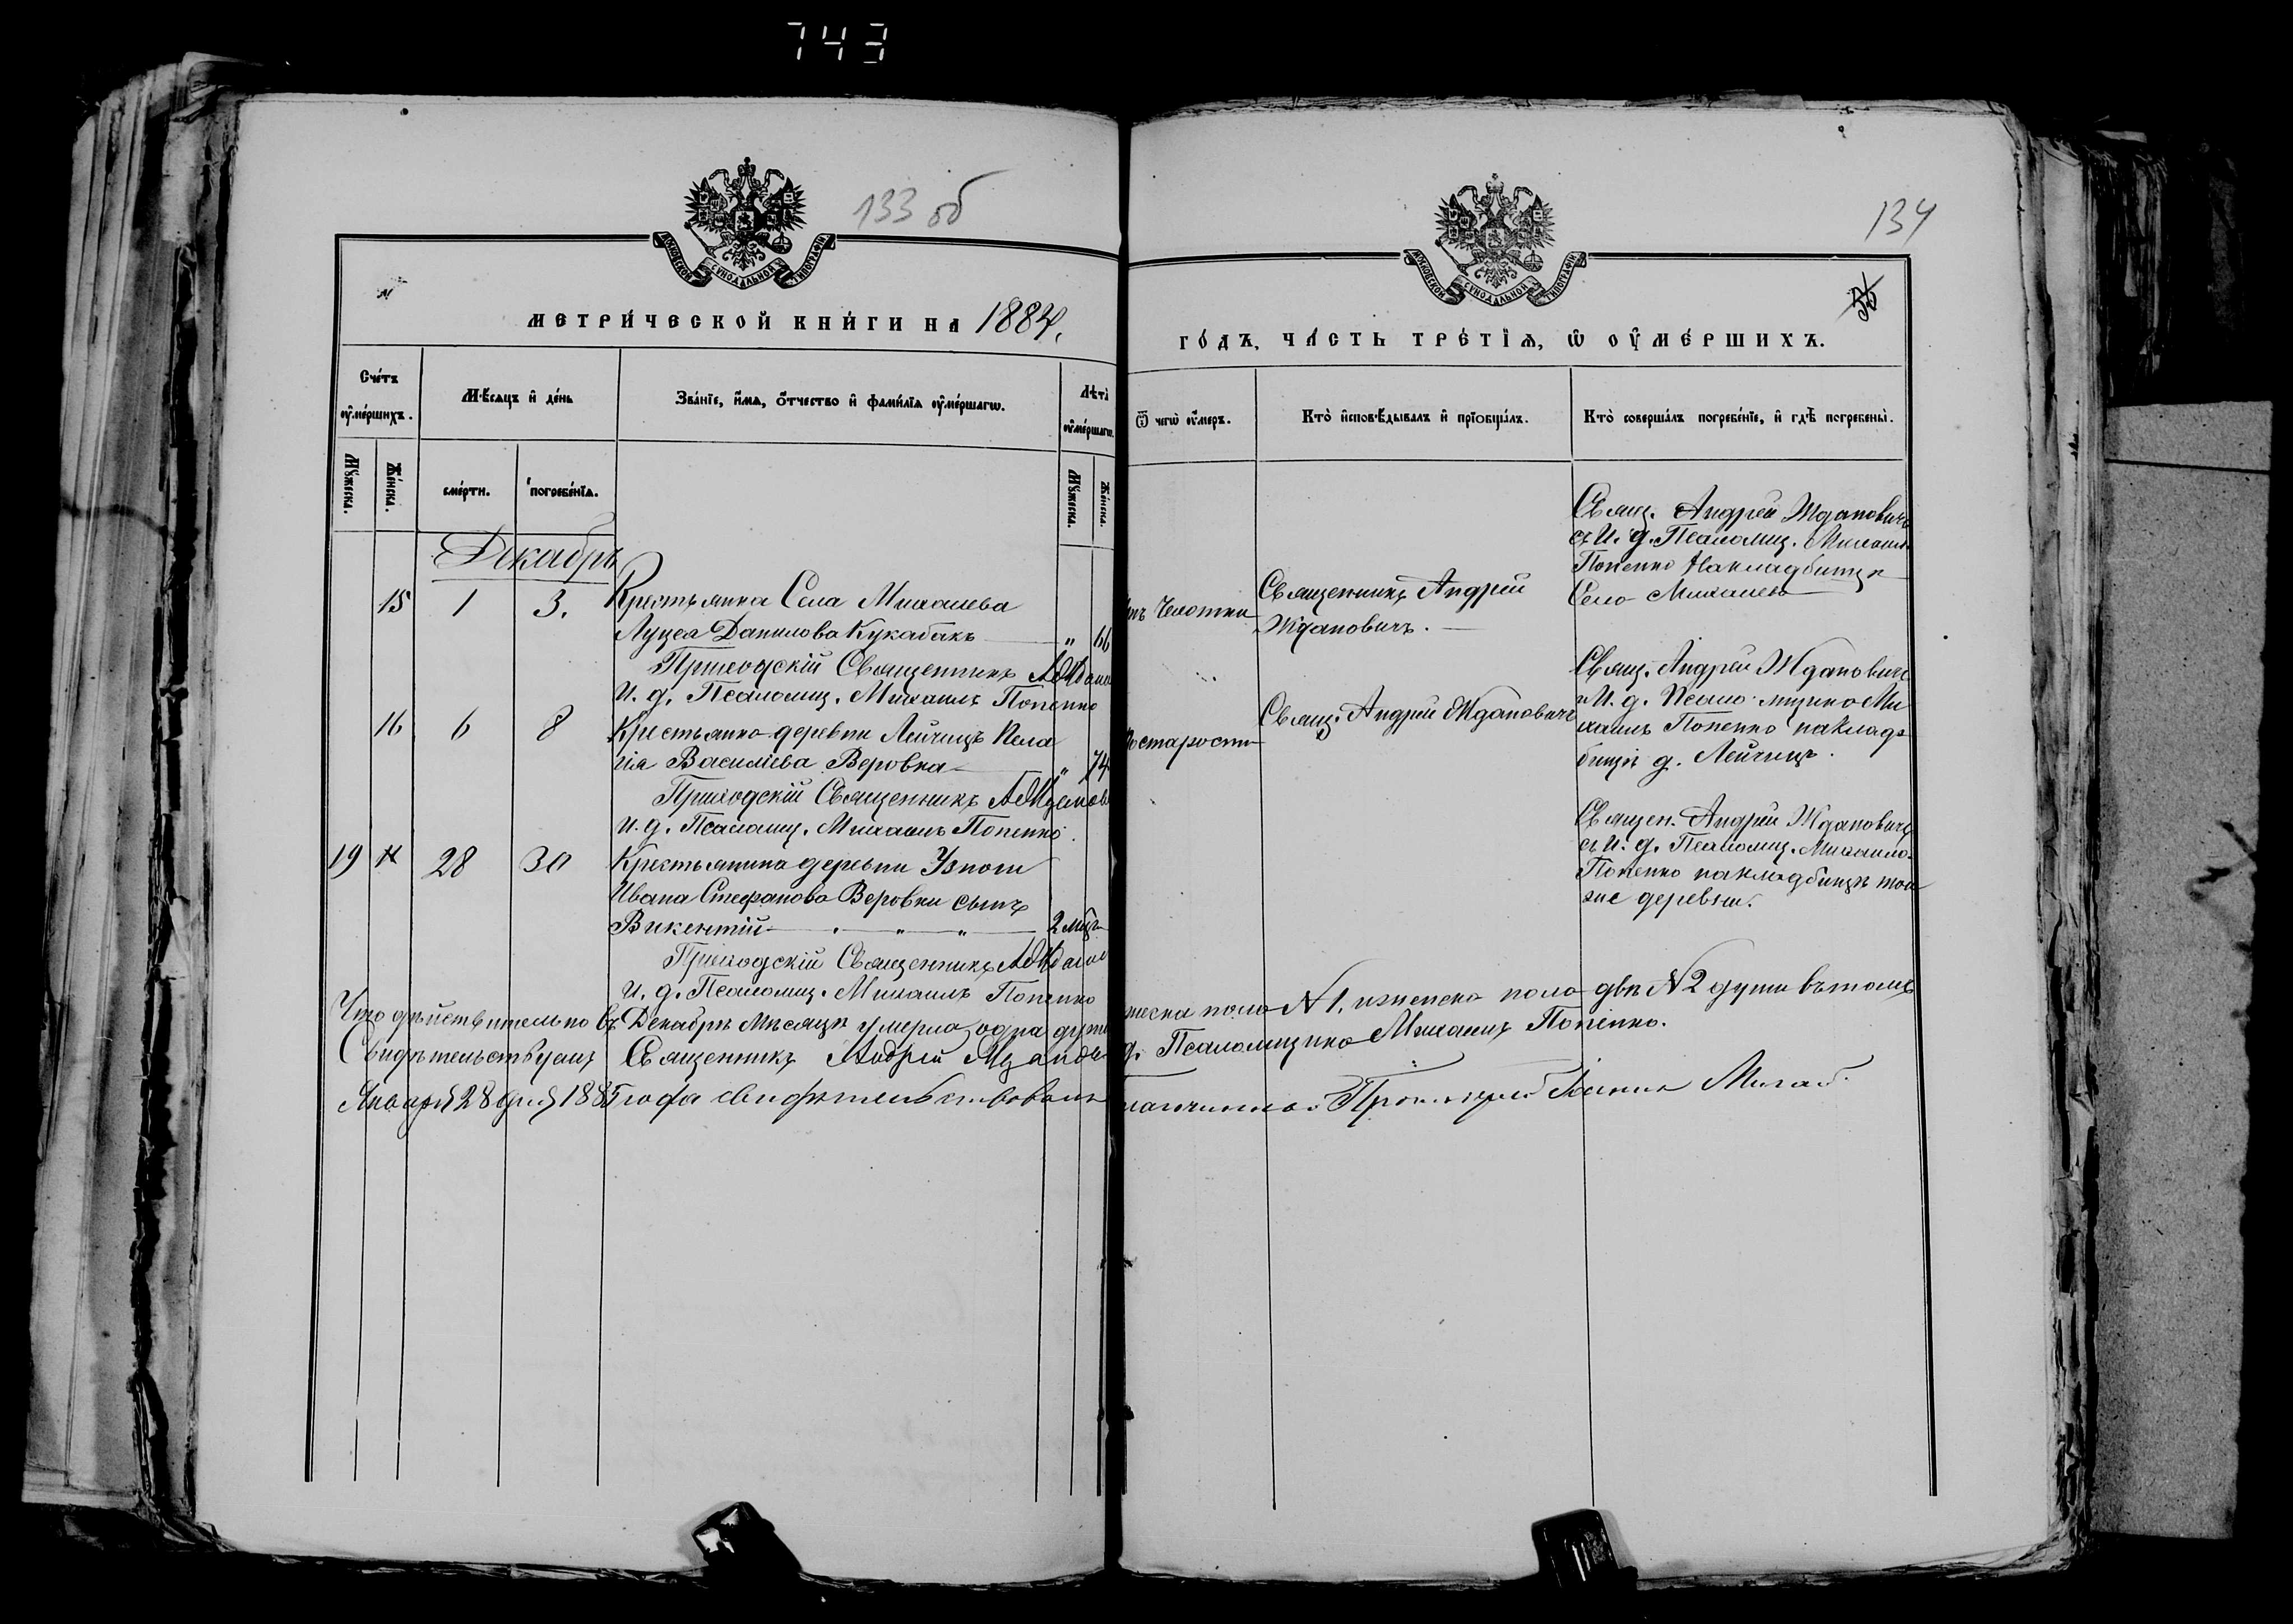 743
133 об
134
35
МОСКОВСКОЙ СѴНОДАЛЬНОЙ ТИПОГРАФІИ
МОСКОВСКОЙ СѴНОДАЛЬНОЙ ТИПОГРАФІИ
МЕТРИ́ЧЕСКОЙ КНИ́ГИ НА 1884.
ГО́ДЪ, ЧА́СТЬ ТРЕ́ТІѦ, Ѡ ОУ҆МЕ́РШИХЪ.
Сче́тъ оу҆ме́ршихъ.
Мꙋ́жеска.
Же́нска.
Мѣ́сяцъ и҆ де́нь
сме́рти.
погребе́нїѧ.
Зва́нїе, и҆́мѧ, ѻ҆́тчество и҆ фами́лїѧ оу҆ме́ршагѡ.
Лѣ́та̀ оу҆ме́ршагѡ.
Мꙋ́жеска.
Же́нска.
Ѿ чегѡ̀ оу҆́меръ.
Кто̀ и҆сповѣ́дывалъ и҆ прїѡбща́лъ.
Кто̀ соверша́лъ погребе́нїе, и҆ гдѣ̀ погребены̀.
Декабрь
15 1 3. Крестьянка Села Михалева
Луцея Данилова Кукабакъ " 66
Чахотки
Священникъ Андрей
Жданович.
Свящ. Андрей Жданович
съ И. д. Псаломщ. Михаил
Попенко На кладбищѣ
Село Михалево
Приходскій Священникъ А. Ждано
И. д. Псаломщ. Михаилъ Попенко
16 6 8 Крестьянка деревни Лейчицъ Пела
гія Василіева Веровка " 74
старости
Свящ. Андрей Жданович
Свящ. Андрей Жданович
и И. д. Псаломщика Ми
хаилъ Попенко на клад
бищѣ д. Лейчицъ.
Приходскій Священникъ А. Жданов
И. д. Псаломщ. Михаилъ Попенко.
19 28 30 Крестьянина деревни Узноги
Ивана Стефанова Веровки сынъ
Викентій " " 2 мѣс.
Священ. Андрей Жданович
съ И. д. Псаломщ. Михаило
Попенко на кладбищѣ той
же деревни.
Приходскій Священникъ А. Ждано
И. д. Псаломщ. Михаилъ Попенко
Что дѣйствительно въ Декабрѣ Мѣсяцѣ умерла одна душа
жеска пола N 1, и женска пола двѣ N 2 души въ томъ
Свидѣтельствуемъ Священникъ Андрей Жданов
д. Псаломщика Михаилъ Попенко.
Января 28 дня 1885 года свидѣтельствовалъ